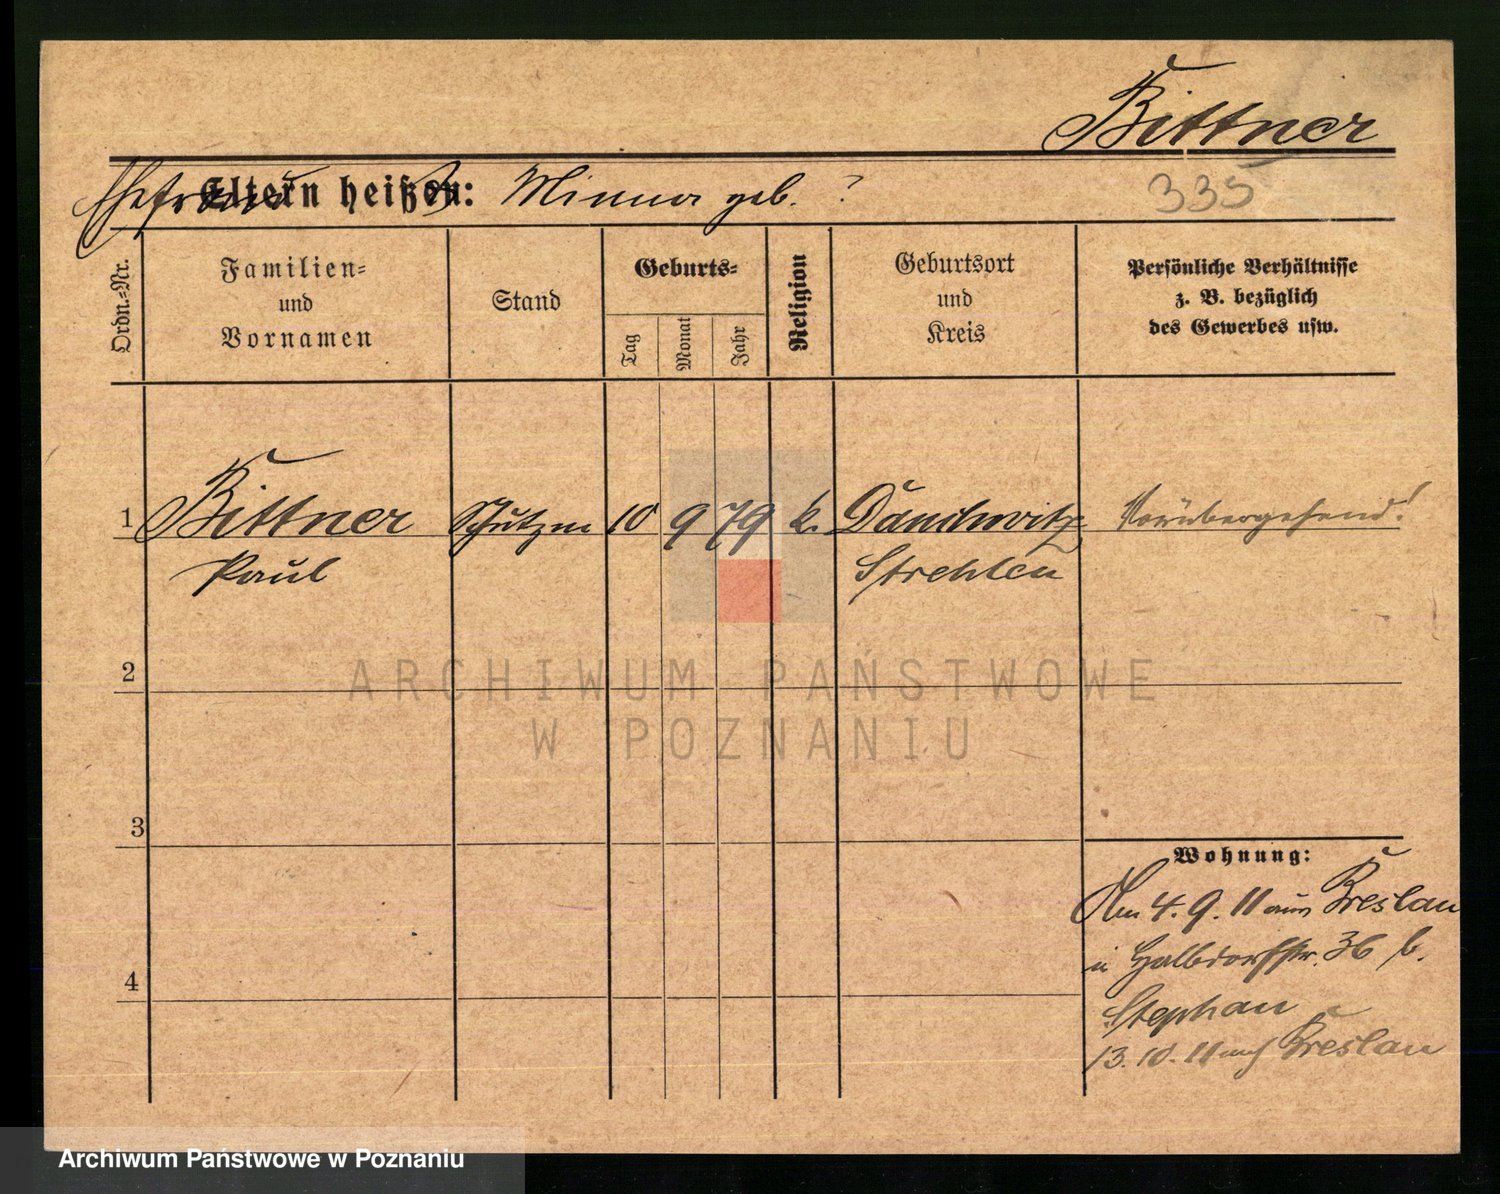 Bittner
335
Ehefrau
Eltern heißen: Minna geb. ?
Ordn.=Nr.
Familien=
und
Vornamen
Stand
Geburts=
Tag
Monat
Jahr
Religion
Geburtsort
und
Kreis
Persönliche Verhältnisse
z. B. bezüglich
des Gewerbes usw.
1 Bittner Schutzm 10 9 79 k. Danchwitz Vorübergehend!
Paul Strehlen
2
ARCHIWUM PAŃSTWOWE
W POZNANIU
3
Wohnung:
Am 4. 9. 11 aus Breslau
Halbdorfstr. 36 b.
4
Stephan
13. 10. 11 auf Breslau
Archiwum Państwowe w Poznaniu